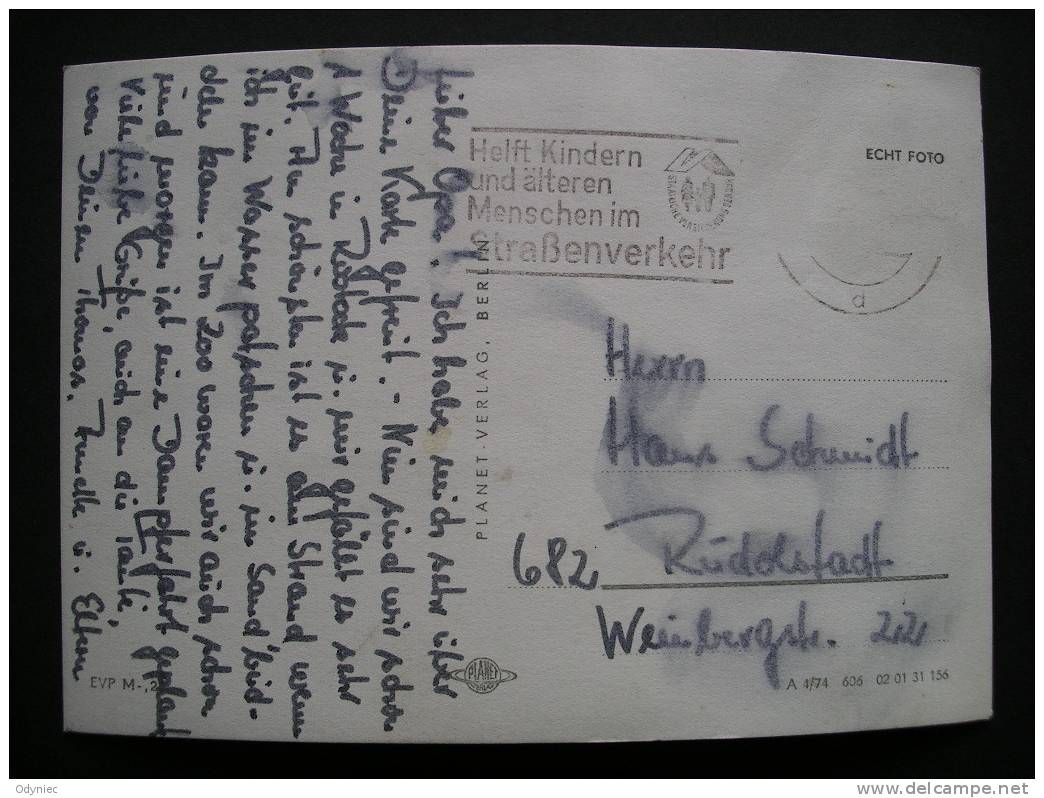 Lieber Opa! Ich habe mich sehr über
Deine Karte gefreut. - Nun sind wir schon
1 Woche in u. mir gefällt es sehr
gut. Am schönsten ist es am Strand wenn
ich im Wasser patschen u. im Sand bud-
deln kann. Im Zoo waren wir auch schon
und morgen ist eine Dampferfahrt geplant
Viele liebe Grüße, auch an die Tante,
von Deinem Thomas, u. Eltern
Helft Kindern
und älteren
Menschen im
Straßenverkehr
ECHT FOTO
d
PLANET-VERLAG, BERLIN
Herrn
Hans Schmidt
682 Rudolstadt
Weinbergstr. 22
EVP M -,2
PLANET
VERLAG
A 4/74 606 02 01 31 156
Odyniec
www.delcampe.net